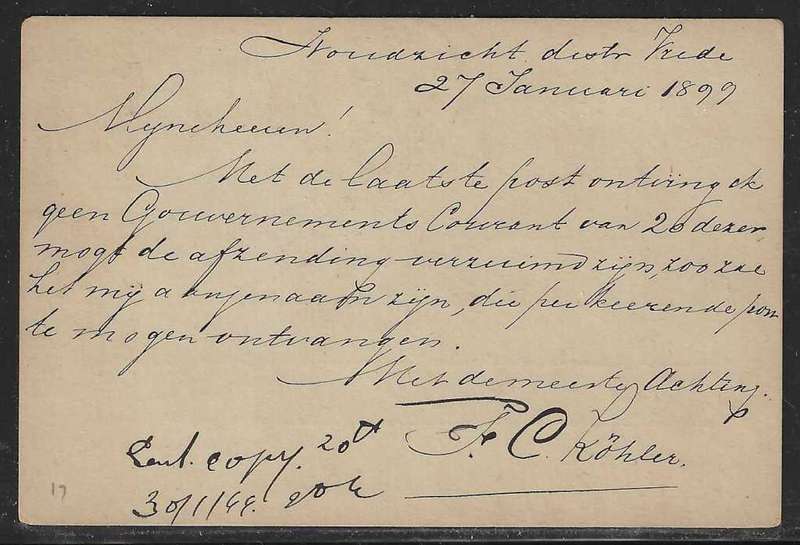 Noudzicht distr Vrede
27 Januari 1899
Mynheeren!
Met de laatste post ontving ik
geen Gouvernements Courant van 20 dezer
mogt de afzending verzuimd zijn, zoo zal
het mij aangenaam zijn, die per keerende post
te mogen ontvangen.
Met de meeste Achting.
F. C. Köhler.
Sent. copy. 20th
30/1/99.
17